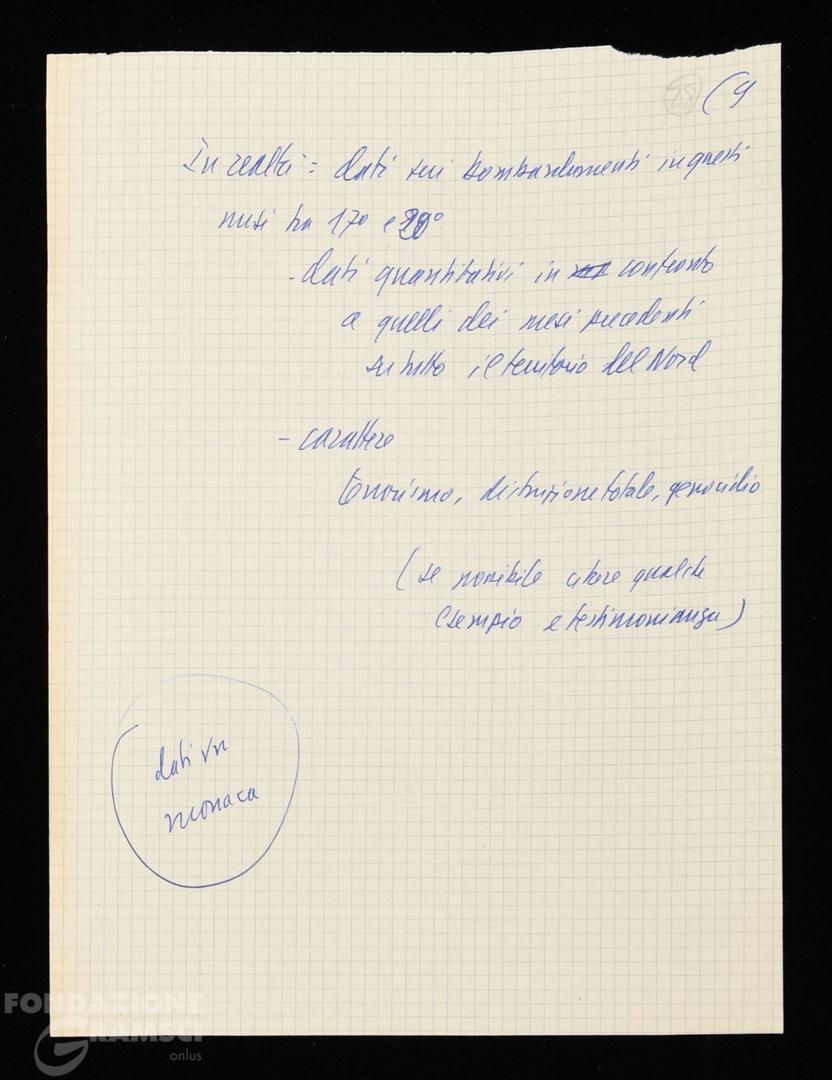 28 (9
In realtà: dati sui bombardamenti in questi
mesi tra 17° e 20°
- dati quantitativi in confronto
a quelli dei mesi precedenti
su tutto il territorio del Nord
- carattere
terrorismo, distruzione totale, genocidio
(se possibile citare qualche
esempio e testimonianza)
dati VN
monaca
FONDAZIONE
GRAMSCI
onlus